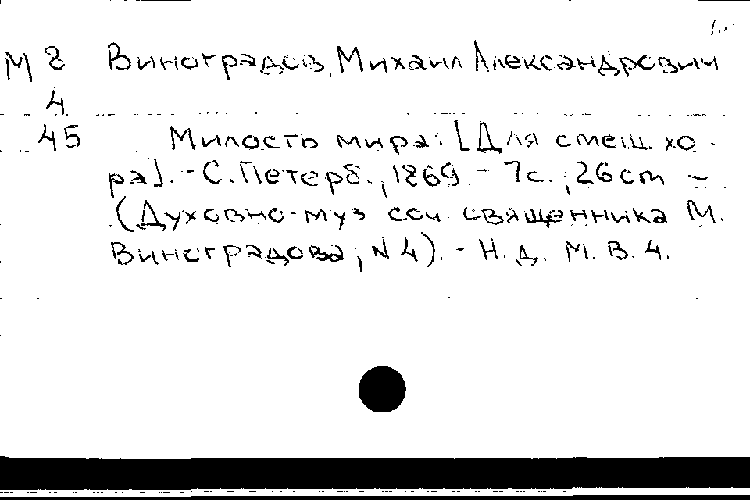 М 8 Виноградов, Михаил Александрович
4
45 Милость мира: [Для смеш. хо-
ра]. - С. Петерб., 1869 - 7с.; 26cm -
(Духовно-муз соч. священника М.
Виноградова; N 4). - Н. д. М. В. 4.